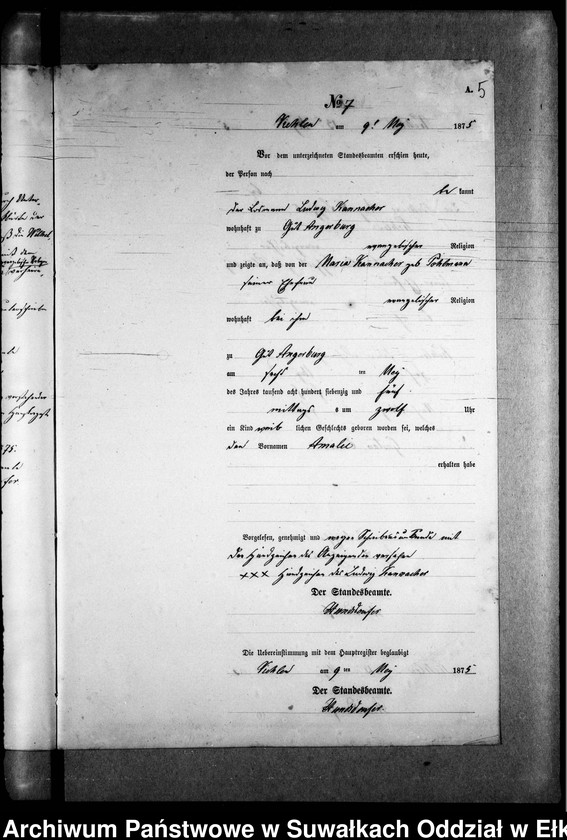 A. 5
No 7
Kehlen am 9t Mai 1875
Vor dem unterzeichneten Standesbeamten erschien heute,
der Person nach
be kannt
der Losmann Ludwig Kannacher
wohnhaft zu Gut Angerburg
evangelischer Religion
und zeigte an, daß von der Maria Kannacher geb Pohlmann
seiner Ehefrau
evangelischer Religion
wohnhaft bei ihm
zu Gut Angerburg
am sechs ten Mai
des Jahres tausend acht hundert siebenzig und fünf
mittags s um zwölf Uhr
ein Kind weib lichen Geschlechts geboren worden sei, welches
den Vornamen Amalie
erhalten habe
Vorgelesen, genehmigt und wegen Schreibensunkunde mit
den Handzeichen des Anzeigenden versehen
+++ Handzeichen des Ludwig Kannacher
Der Standesbeamte.
Die Uebereinstimmung mit dem Hauptregister beglaubigt
Kehlen am 9 ten Mai 1875
Der Standesbeamte.
Archiwum Państwowe w Suwałkach Oddział w Ełk